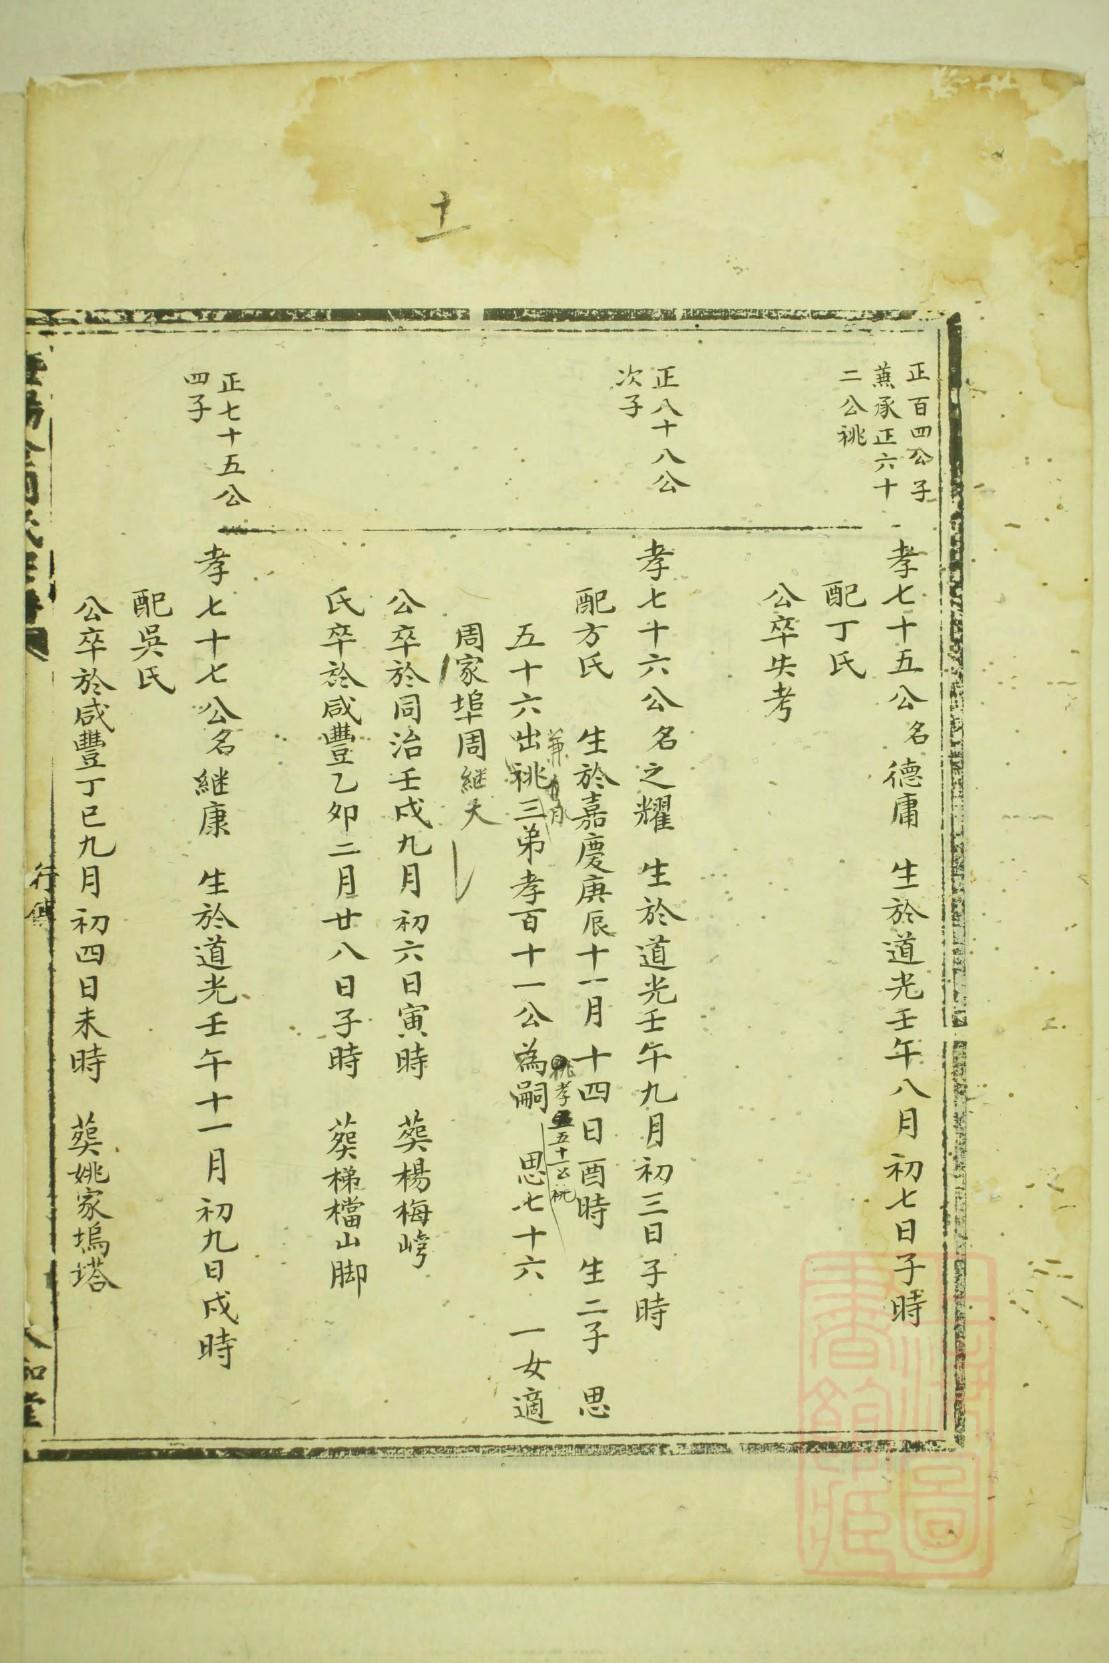 十
正百四公子
蕉承正六十
二公祧
孝七十五公名德庸 生於道光壬午八月初七日子時
配丁氏
公卒失考
正八十八公
次子
孝七十六公名之耀 生於道光壬午九月初三日子時
配方氏 生於嘉慶庚辰十一月十四日酉時 生二子 思
五十六出祧三弟孝百十一公為嗣 思七十六 一女適
祧孝五十一公祧
周家埠周継大
公卒於同治壬戍九月初六日寅時 葖楊梅崂
氏卒於咸豐乙夘二月廿八日子時 葖梯檔山脚
正七十五公
四子
孝七十七公名継康 生於道光壬午十一月初九日戍時
配吳氏
公卒於咸豐丁巳九月初四日未時 葖姚家塢塔
行傳
圖書館